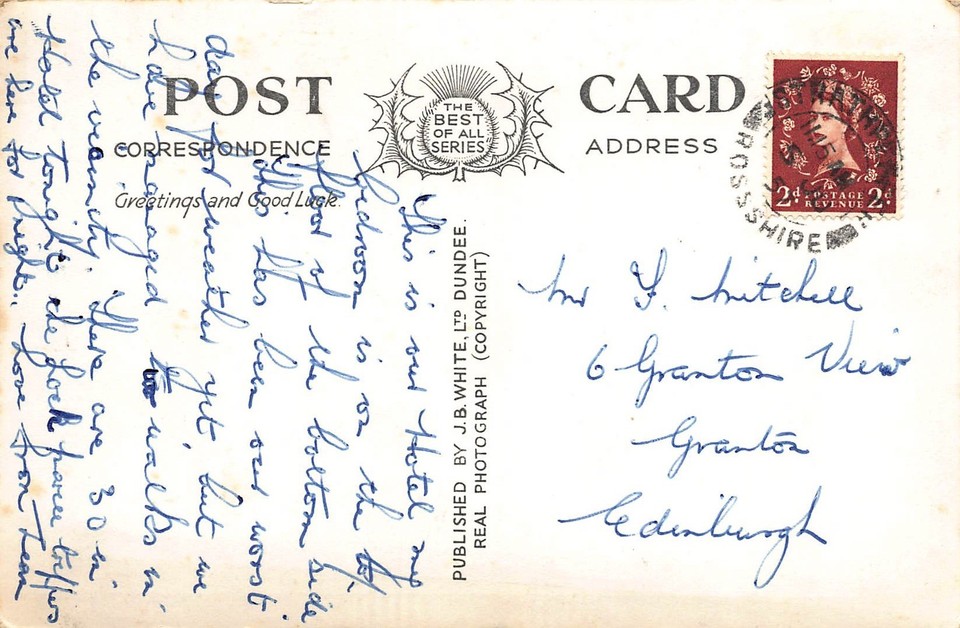 POST CARD
THE
BEST
OF ALL
SERIES
CORRESPONDENCE
ADDRESS
Greetings and Good Luck.
This is our Hotel my
bedroom is on the top
floor at the bottom side
This has been our worst
day for weather yet but we
have managed two walks in
the vicinity. There are 30 in
Hotel tonight the Lock power trippers
are here for night. Love from Jean
PUBLISHED BY J.B. WHITE, LTD DUNDEE.
REAL PHOTOGRAPH (COPYRIGHT)
Mr F. Mitchell
6 Granton View
Granton
Edinburgh
2d POSTAGE 2d
REVENUE
ROSS-SHIRE